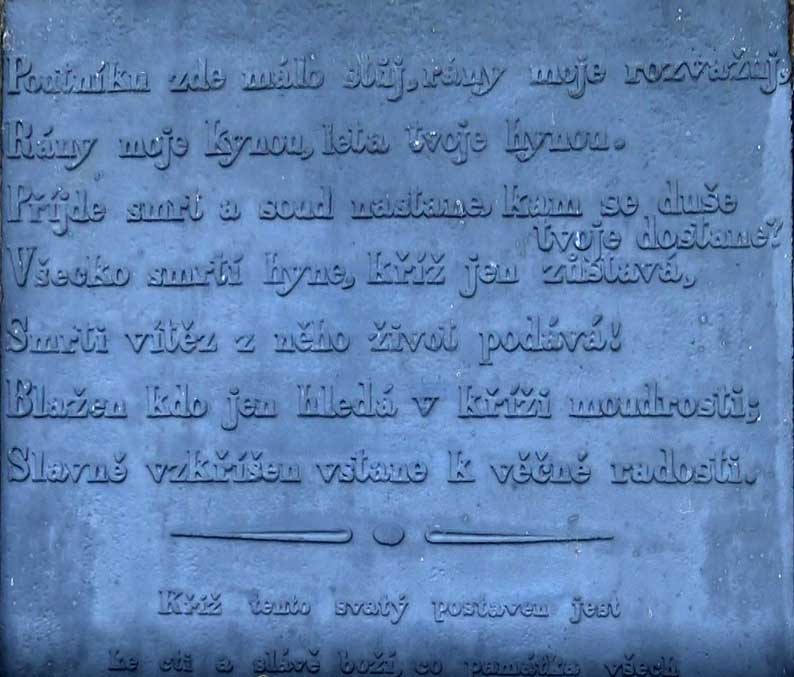 Poutníku zde málo stůj, rány moje rozvažuj,
Rány moje kynou, leta tvoje hynou.
Příjde smrt a soud nastane, kam se duše
tvoje dostane?
Všecko smrtí hyne, kříž jen zůstává,
Smrti vítěz z něho život podává!
Blažen kdo jen hledá v kříži moudrosti;
Slavně vzkříšen vstane k věčné radosti.
Kříž tento svatý postaven jest
ke cti a slávě boží, co památka všech